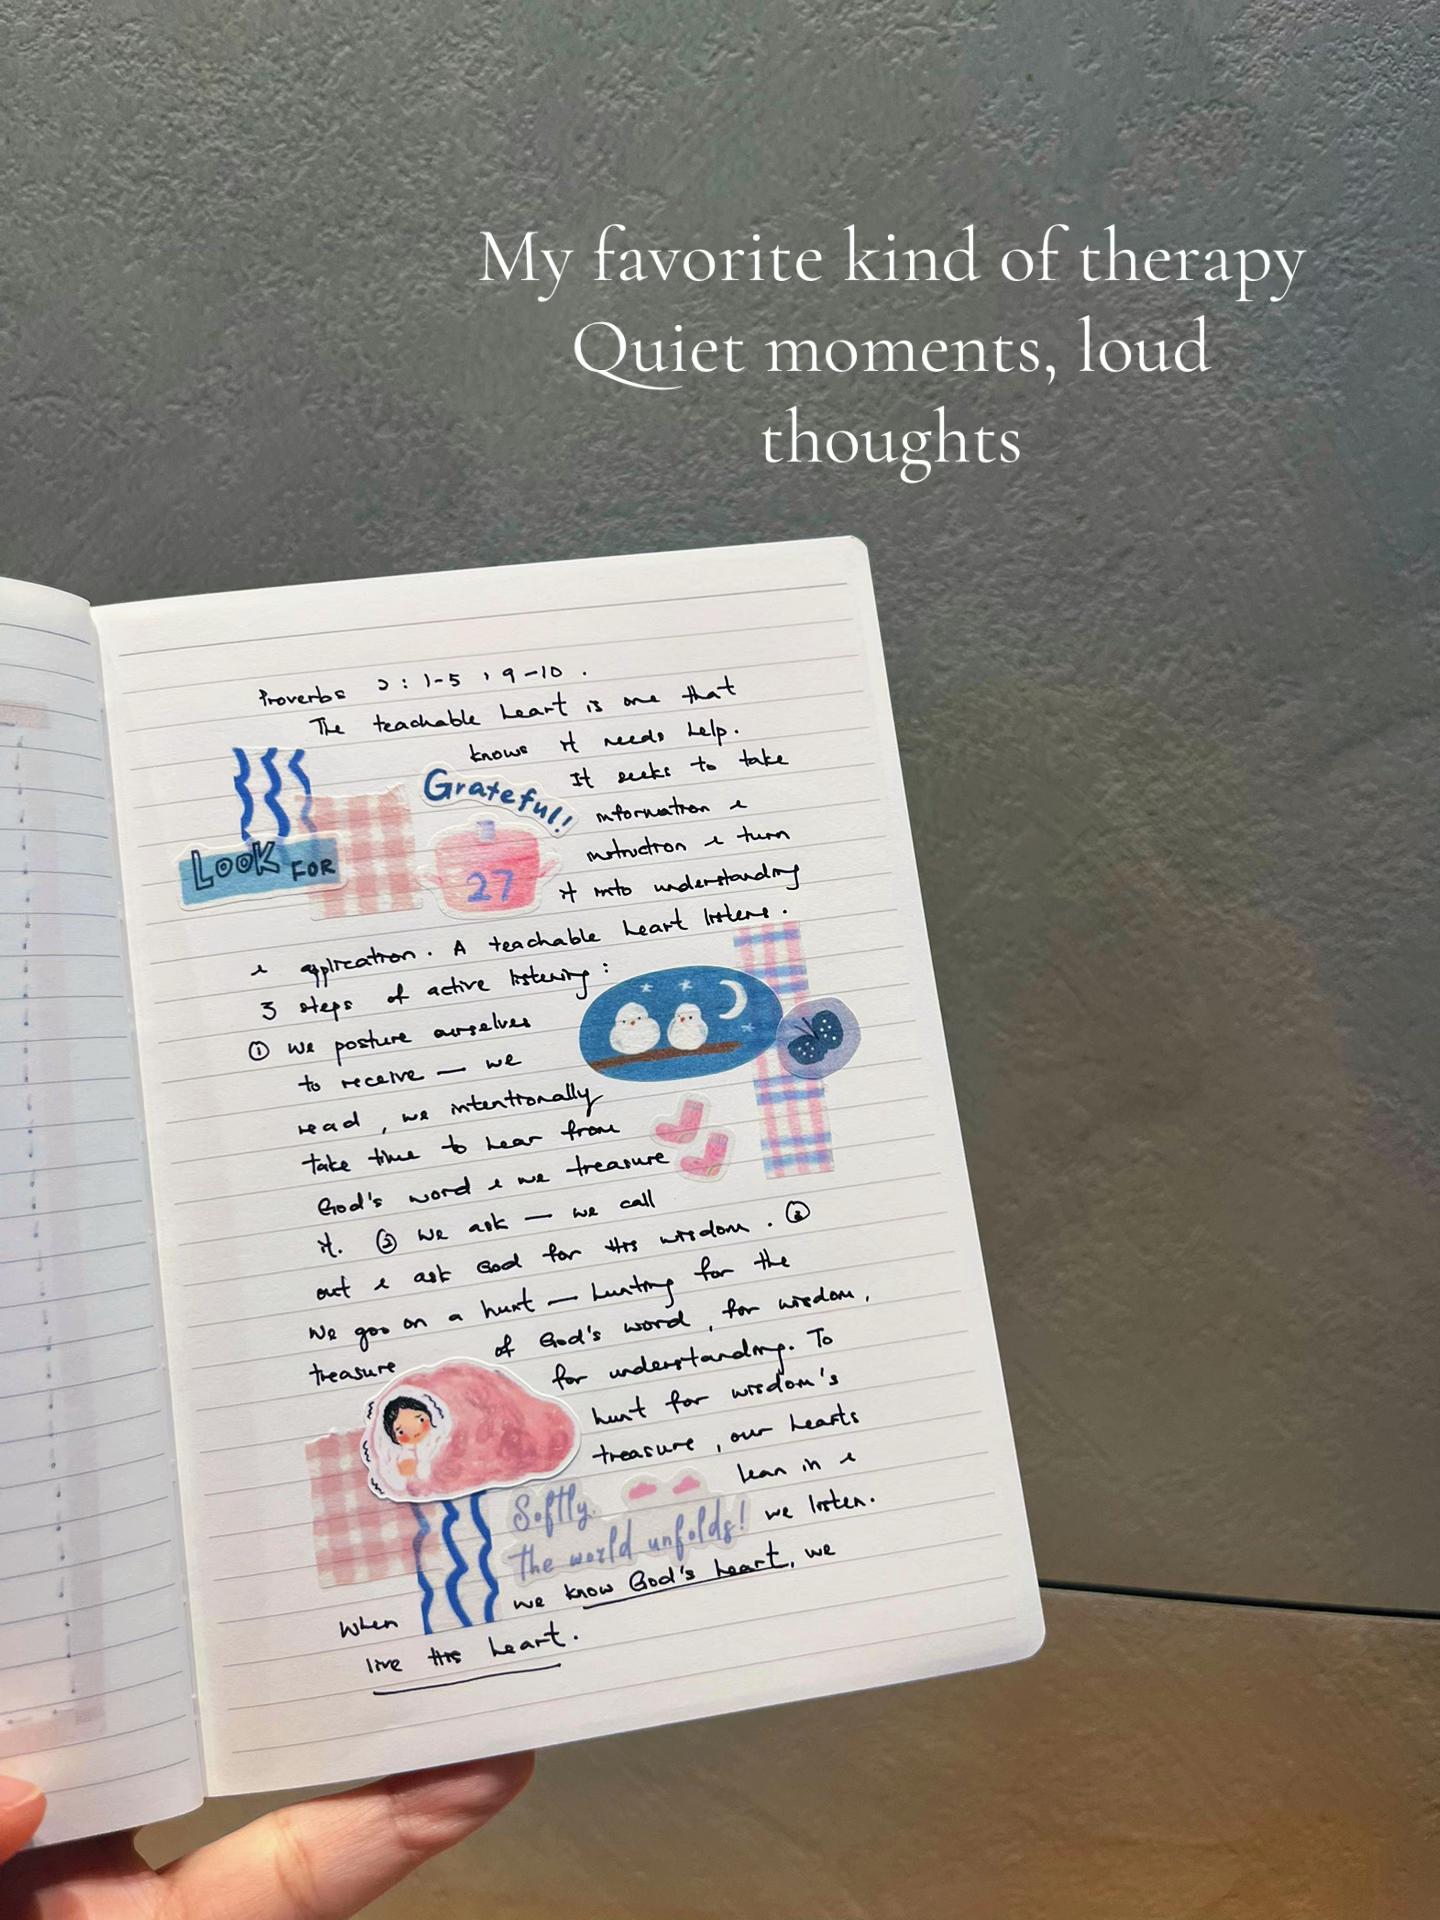 My favorite kind of therapy
Quiet moments, loud
thoughts
Proverbs 2 : 1-5 , 9-10 .
The teachable heart is one that
knows it needs help.
Grateful!
It seeks to take
information &
LOOK FOR
27
instruction & turn
it into understanding
& application. A teachable heart listens.
3 steps of active listening :
① we posture ourselves
to receive — we
read , we intentionally
take time to hear from
God's word & we treasure
it. ② we ask — we call
out & ask God for His wisdom . ③
We goo on a hunt — hunting for the
treasure of God's word , for wisdom ,
for understanding. To
hunt for wisdom's
treasure , our hearts
lean in &
Softly.
the world unfolds!
we listen.
When we know God's heart, we
live His heart.